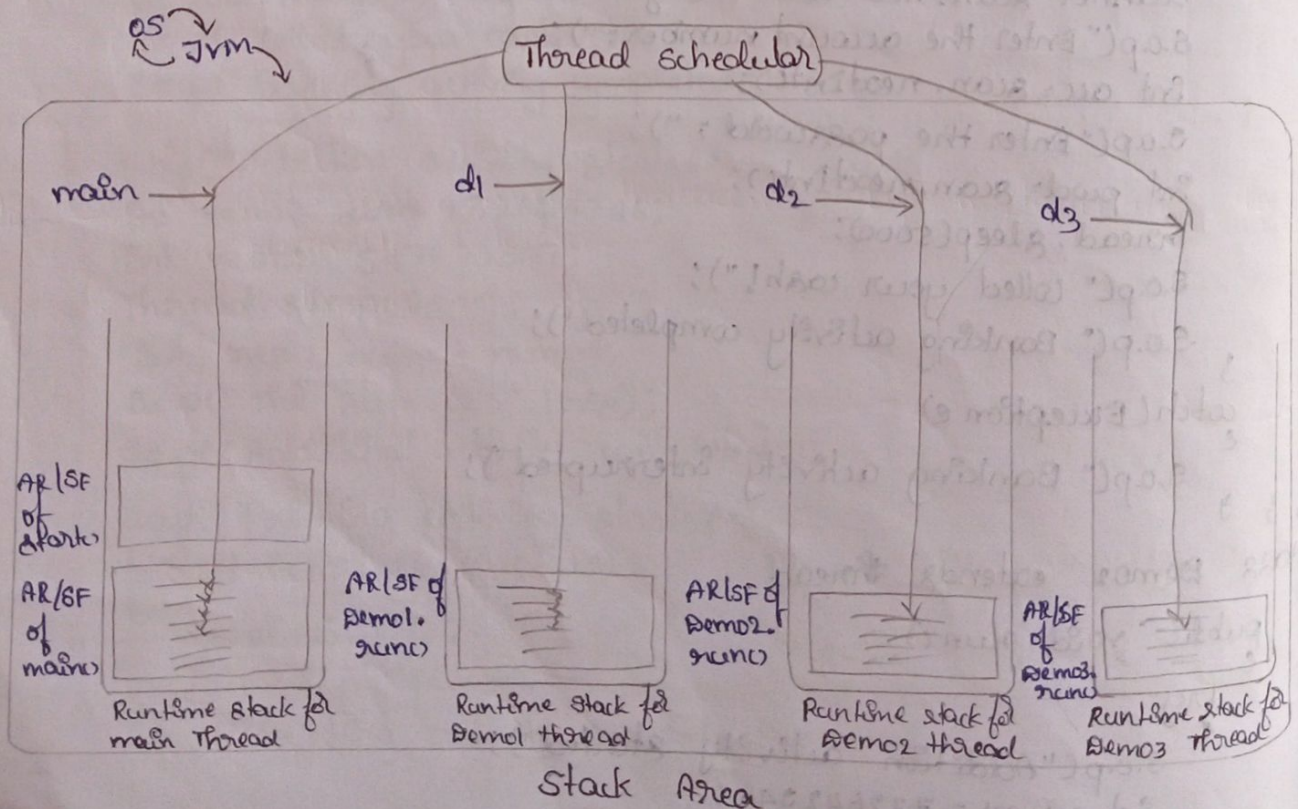 OS
Jvm
Thread Schedular
main
d1
d2
d3
AR/SF
of
start()
AR/SF
of
main()
AR/SF of
Demo1.
run()
AR/SF of
Demo2.
run()
AR/SF
of
Demo3.
run()
Runtime stack for
main Thread
Runtime stack for
Demo1 thread
Runtime stack for
Demo2 thread
Runtime stack for
Demo3 Thread
Stack Area